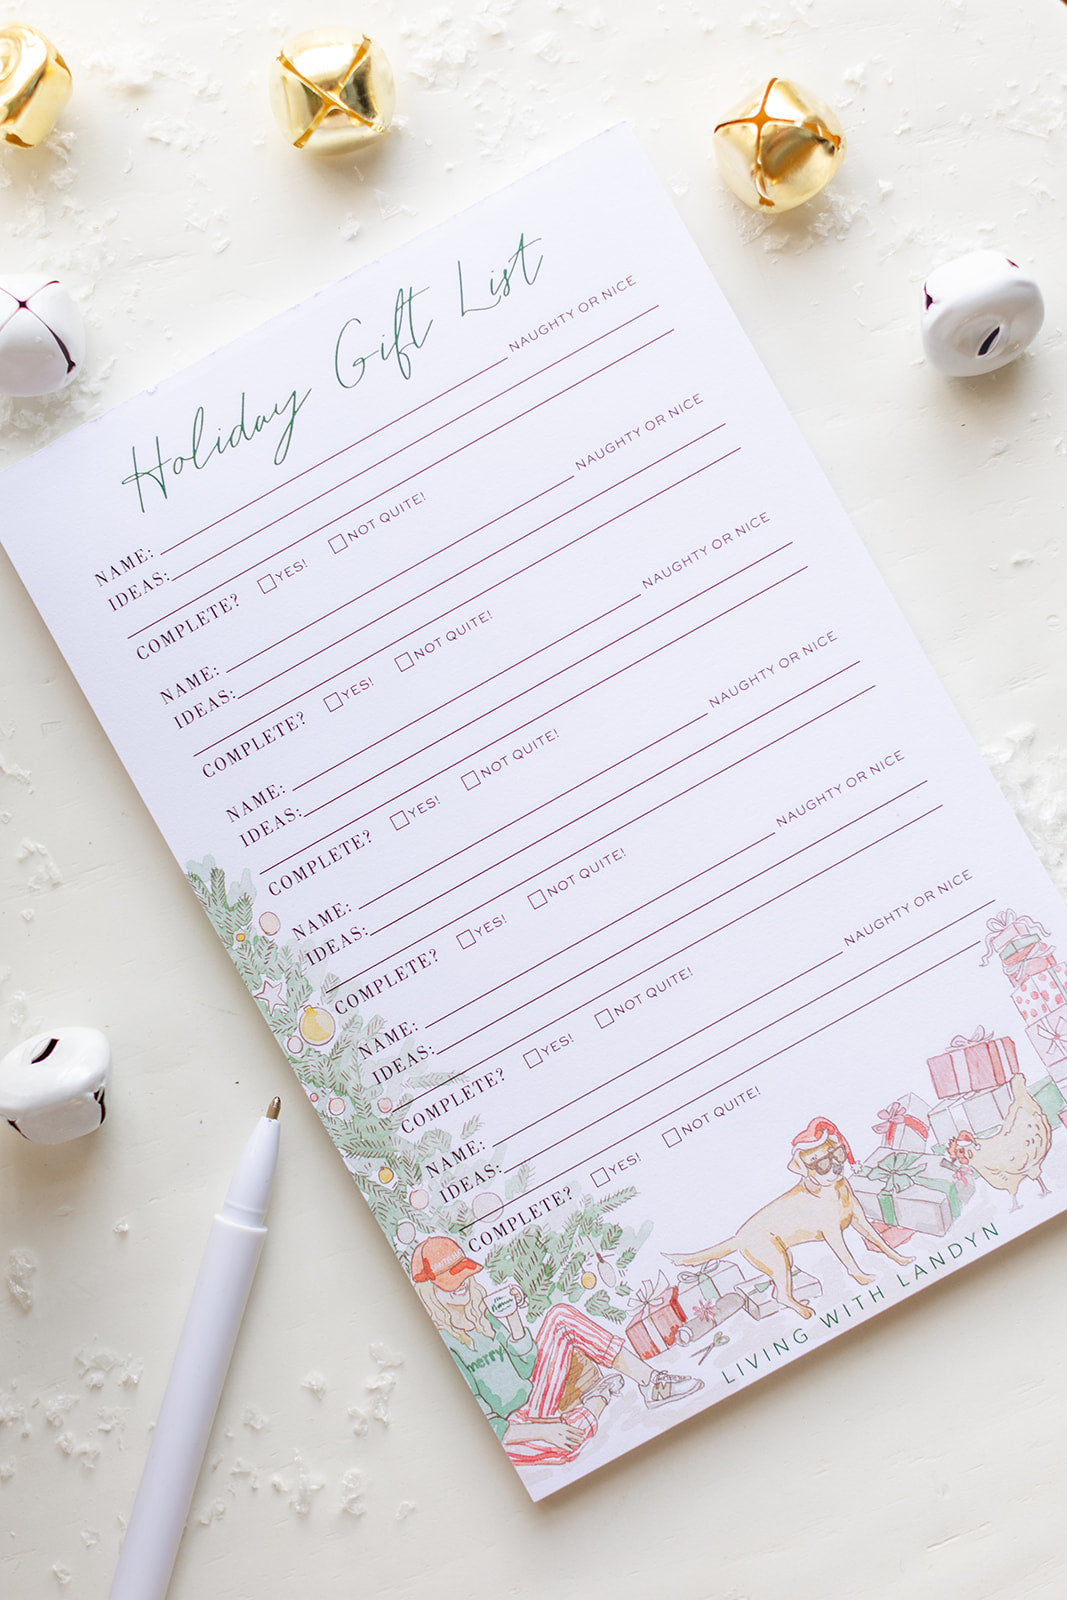 Holiday Gift List
NAME: NAUGHTY OR NICE
IDEAS:
COMPLETE? YES! NOT QUITE!
NAME: NAUGHTY OR NICE
IDEAS:
COMPLETE? YES! NOT QUITE!
NAME: NAUGHTY OR NICE
IDEAS:
COMPLETE? YES! NOT QUITE!
NAME: NAUGHTY OR NICE
IDEAS:
COMPLETE? YES! NOT QUITE!
NAME: NAUGHTY OR NICE
IDEAS:
COMPLETE? YES! NOT QUITE!
NAME: NAUGHTY OR NICE
IDEAS:
COMPLETE? YES! NOT QUITE!
merry
LIVING WITH LANDYN